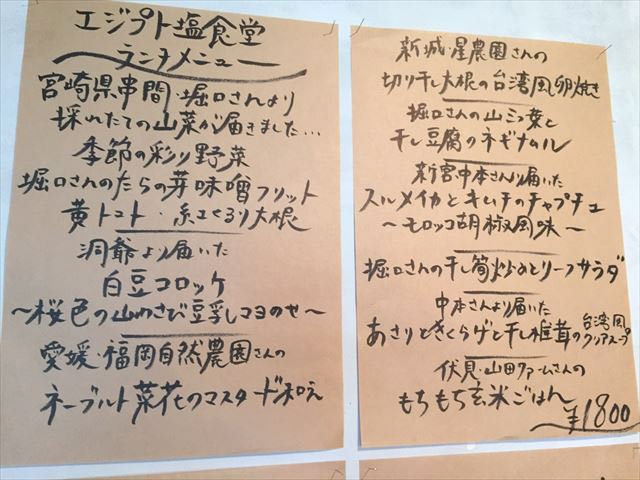 エジプト塩食堂
ランチメニュー
宮崎県串間・堀口さんより
採れたての山菜が届きました…
季節の彩り野菜
堀口さんのたらの芽味噌フリット
黄トマト・紅くるり大根
洞爺より届いた
白豆コロッケ
〜桜色の山わさび豆乳マヨのせ〜
愛媛・福岡自然農園さんの
ネーブルト菜花のマスタード和え
新城・星農園さんの
切り干し大根の台湾風卵焼き
堀口さんの山三つ葉と
干し豆腐のネギナムル
新宮中本さんより届いた
スルメイカとキムチのチャプチェ
〜モロッコ胡椒風味〜
堀口さんの干し筍炒めとリーフサラダ
中本さんより届いた
あさりときくらげと干し椎茸の台湾風クリアスープ
伏見・山田ファームさんの
もちもち玄米ごはん
¥1800